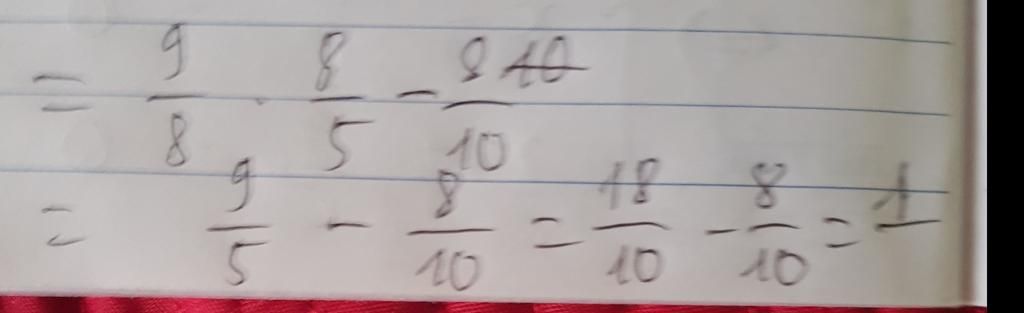 = 9/8 · 8/5 - 8/10
= 9/5 - 8/10 = 18/10 - 8/10 = 1